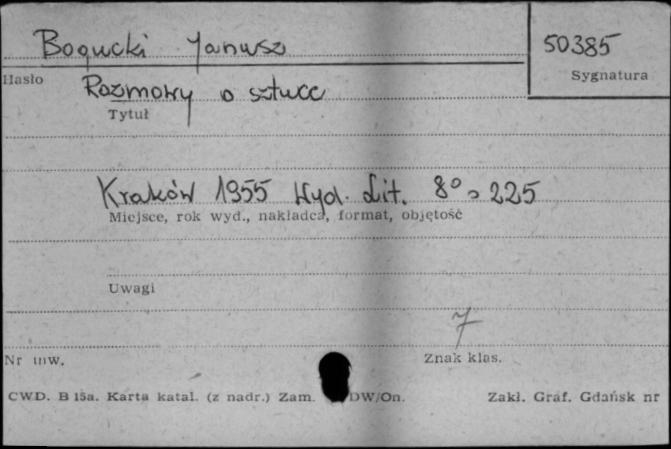 Bogucki Janusz
50385
Hasło
Sygnatura
Rozmowy o sztuce
Tytuł
Kraków 1955 Wyd. Lit. 8° s 225
Miejsce, rok wyd., nakładca, format, objętość
Uwagi
7
Nr inw.
Znak klas.
CWD. B 15a. Karta katal. (z nadr.) Zam. DW/On. Zakł. Graf. Gdańsk nr